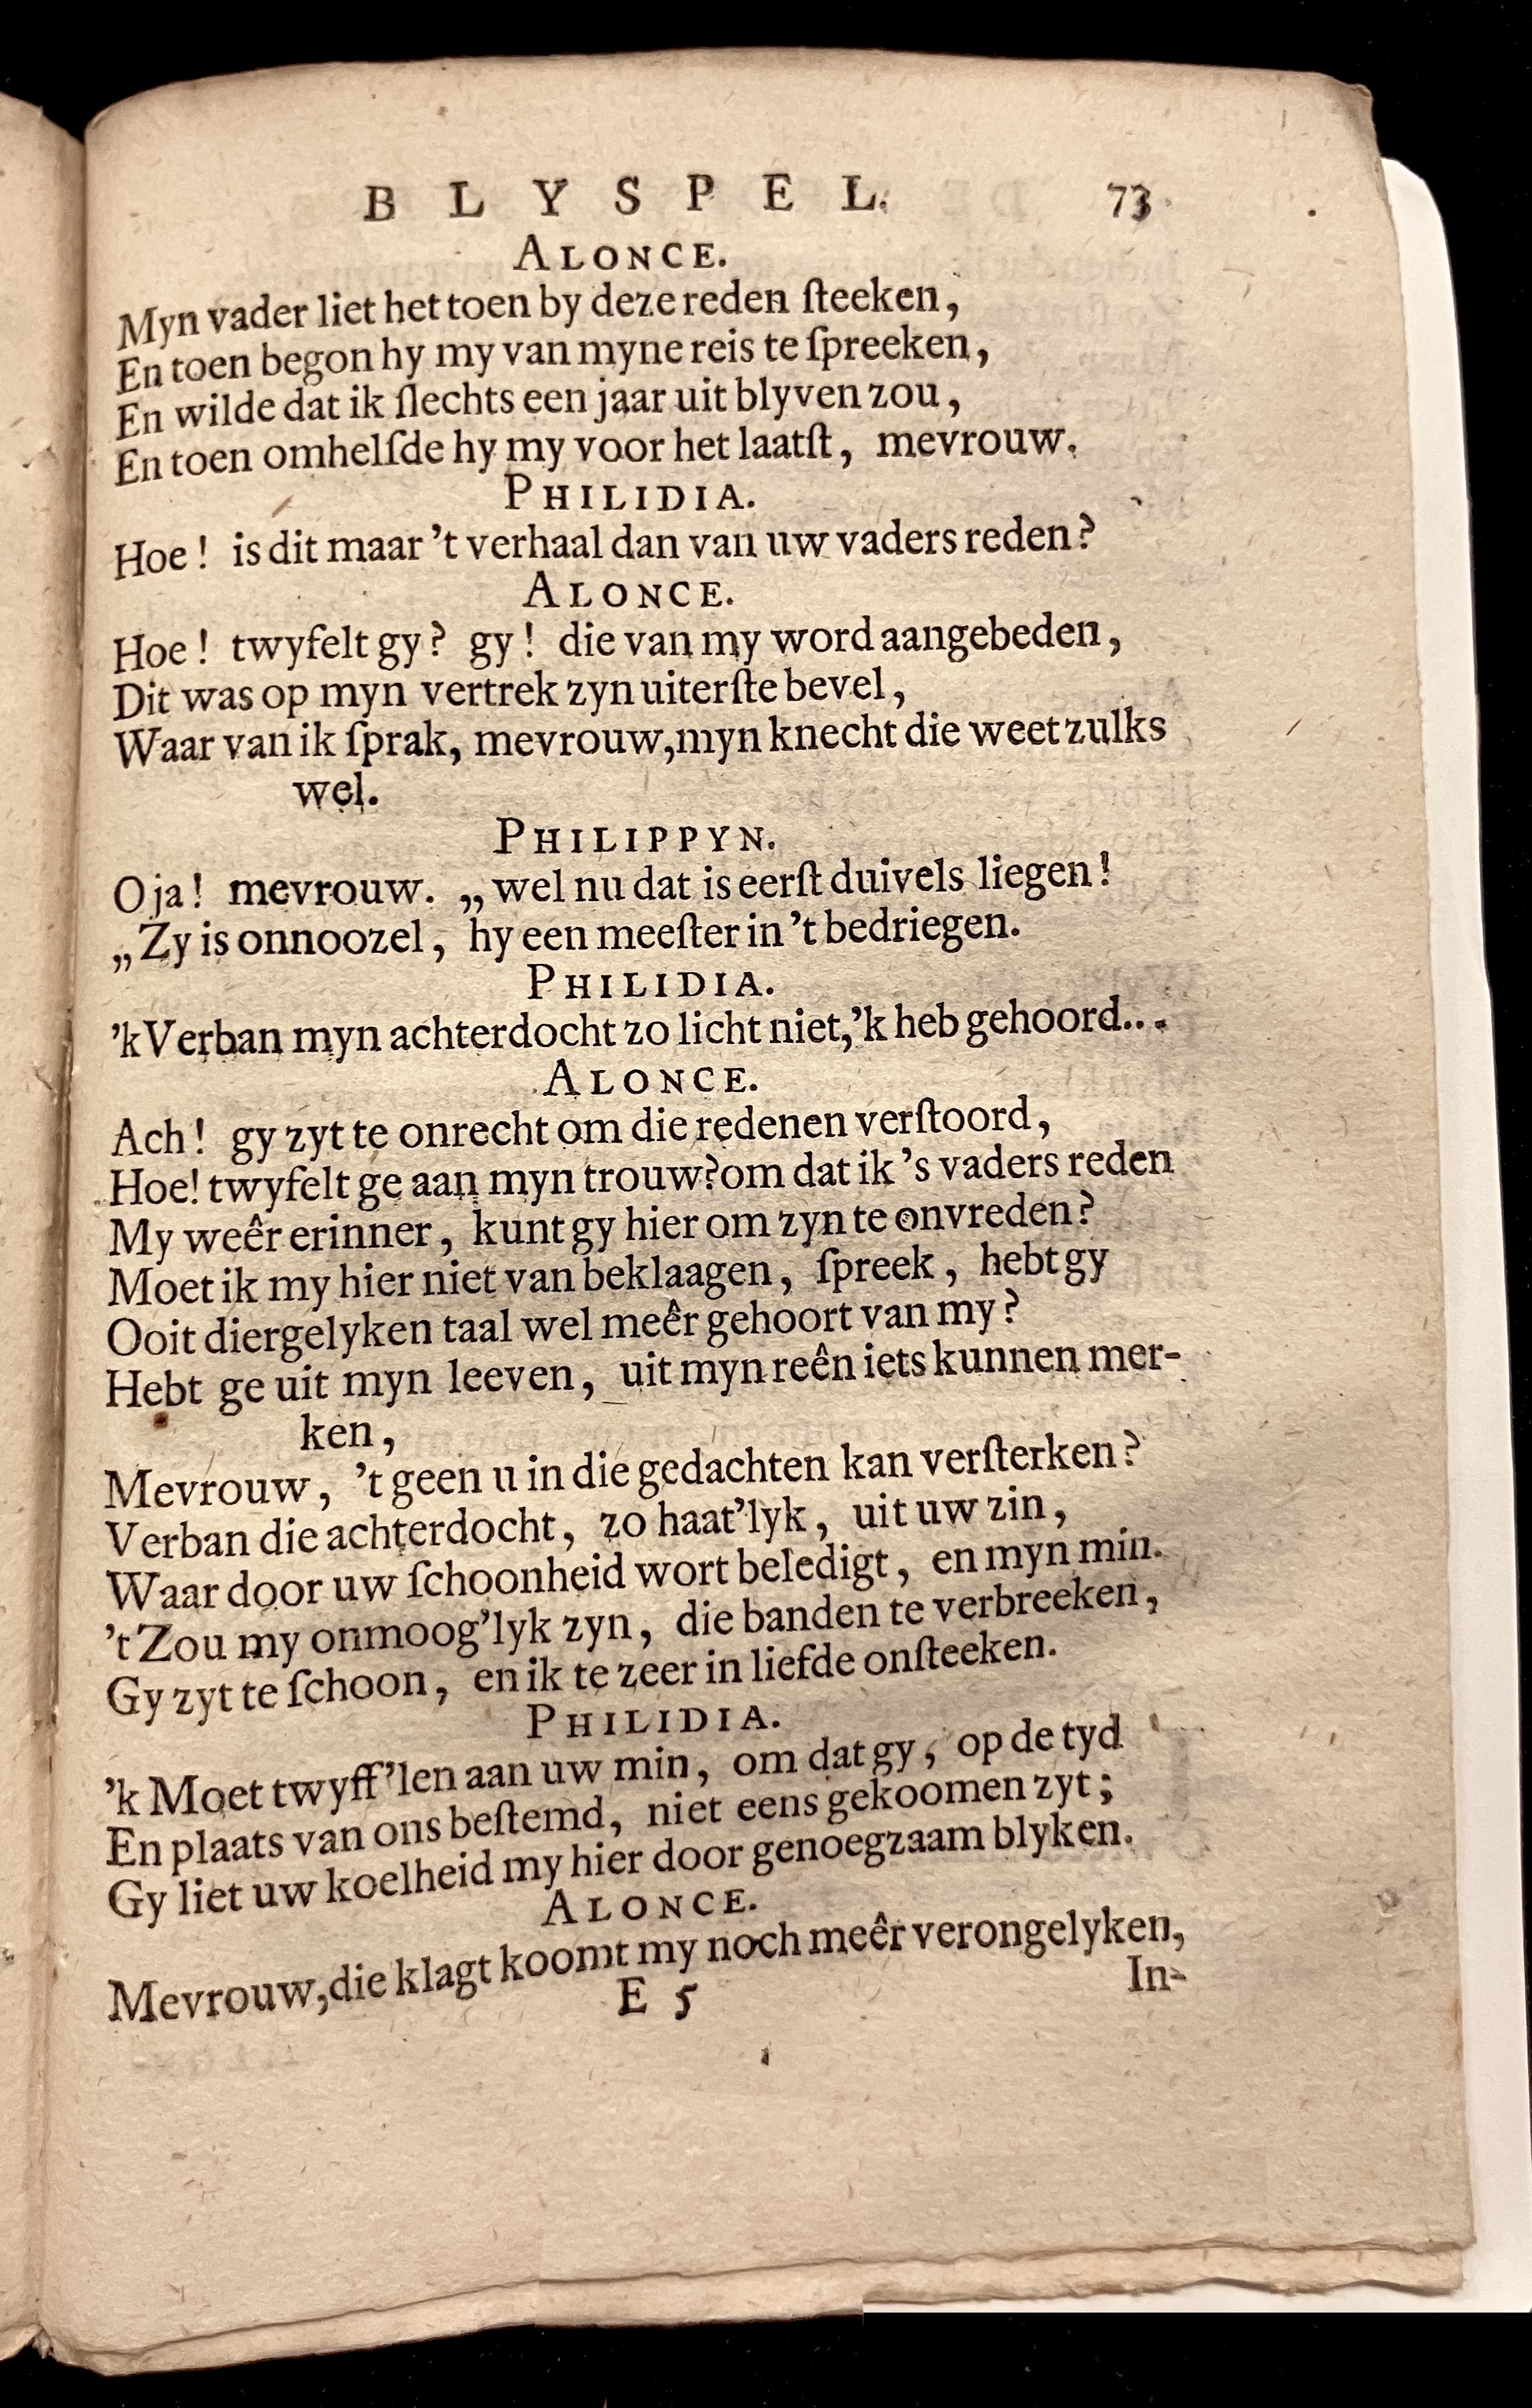 BLYSPEL. 73
ALONCE.
Myn vader liet het toen by deze reden ſteeken,
En toen begon hy my van myne reis te ſpreeken,
En wilde dat ik ſlechts een jaar uit blyven zou,
En toen omhelſde hy my voor het laatſt, mevrouw.
PHILIDIA.
Hoe! is dit maar 't verhaal dan van uw vaders reden?
ALONCE.
Hoe! twyfelt gy? gy! die van my word aangebeden,
Dit was op myn vertrek zyn uiterſte bevel,
Waar van ik ſprak, mevrouw, myn knecht die weet zulks
wel.
PHILIPPYN.
O ja! mevrouw. „wel nu dat is eerſt duivels liegen!
„Zy is onnoozel, hy een meeſter in 't bedriegen.
PHILIDIA.
'k Verban myn achterdocht zo licht niet, 'k heb gehoord...
ALONCE.
Ach! gy zyt te onrecht om die redenen verſtoord,
Hoe! twyfelt ge aan myn trouw? om dat ik 's vaders reden
My weêr erinner, kunt gy hier om zyn te onvreden?
Moet ik my hier niet van beklaagen, ſpreek, hebt gy
Ooit diergelyken taal wel meêr gehoort van my?
Hebt ge uit myn leeven, uit myn reên iets kunnen mer-
ken,
Mevrouw, 't geen u in die gedachten kan verſterken?
Verban die achterdocht, zo haat'lyk, uit uw zin,
Waar door uw ſchoonheid wort beledigt, en myn min.
't Zou my onmoog'lyk zyn, die banden te verbreeken,
Gy zyt te ſchoon, en ik te zeer in liefde onſteeken.
PHILIDIA.
'k Moet twyff'len aan uw min, om dat gy, op de tyd
En plaats van ons beſtemd, niet eens gekoomen zyt;
Gy liet uw koelheid my hier door genoegzaam blyken.
ALONCE.
Mevrouw, die klagt koomt my noch meêr verongelyken,
E 5 In-